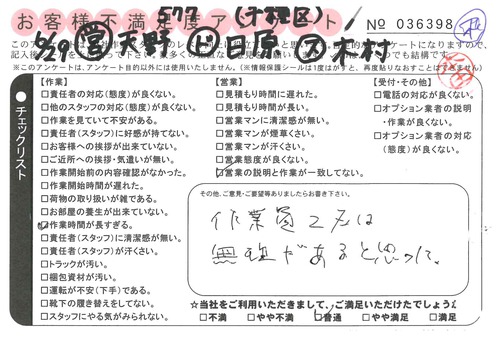 577 (千種区)
お客様不満足度アンケート
№ 036398
6/29 営 天野 ド 日原 ス 木村
※このアンケートは、アンケート目的以外には使用いたしません。(※情報保護シールは1度はがすと、再度貼りなおすことはできません)
チェックリスト
【作業】
□責任者の対応(態度)が良くない。
□他のスタッフの対応(態度)が良くない。
□作業を見ていて不安がある。
□責任者(スタッフ)に好感が持てない。
□お客様への挨拶が出来ていない。
□ご近所への挨拶・気遣いが無い。
□作業開始前の内容確認がなかった。
□作業開始時間が遅れた。
□荷物の取り扱いが雑である。
□お部屋の養生が出来ていない。
☑作業時間が長すぎる。
□責任者(スタッフ)に清潔感が無い。
□責任者(スタッフ)が汗くさい。
□トラックが汚い。
□梱包資材が汚い。
□運転が不安(下手)である。
□靴下の履き替えをしてない。
□スタッフにやる気がみられない。
【営業】
□見積もり時間に遅れた。
□見積もり時間が長い。
□営業マンに清潔感が無い。
□営業マンが煙草くさい。
□営業マンが汗くさい。
□営業態度が良くない。
☑営業の説明と作業が一致してない。
【受付・その他】
□電話の対応が良くない。
□オプション業者の説明
・作業が良くない。
□オプション業者の対応
(態度)が良くない。
その他、ご意見・ご要望等ありましたらお書き下さい。
作業員2名は
無理があると思った。
☆当社をご利用いただきまして、ご満足いただけたでしょうか
□不満 □やや不満 ☑普通 □やや満足 □満足